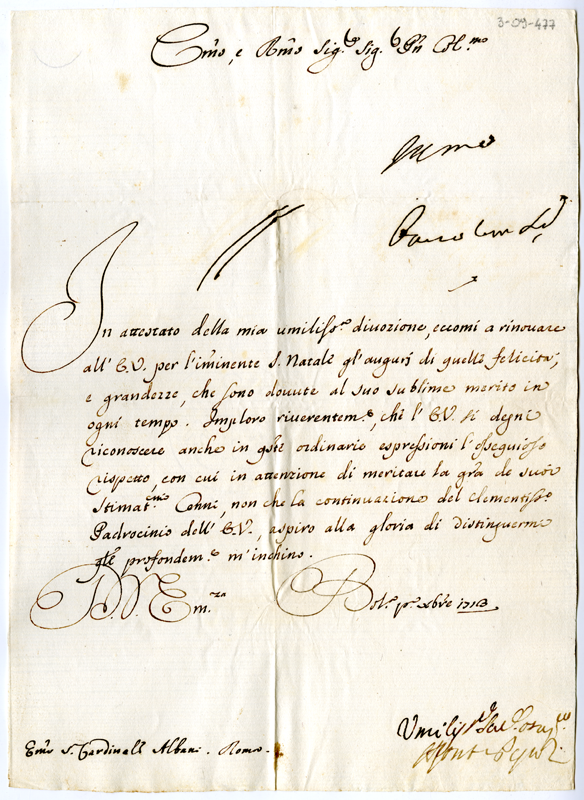 3-09-477
Emo, e Rmo Sig.r Sig.r Pn Col.mo
In attestato della mia umiliss.a divozione, eccomi a rinovare
all' E.V. per l'iminente S. Natale gl'augurj di quelle felicità,
e grandezze, che sono dovute al suo sublime merito in
ogni tempo. Imploro riverentem.e, che l'E.V. si degni
riconoscere anche in q.ste ordinarie espressioni l'ossequioso
rispetto, con cui in attenzione di meritare la gr̃a de suoi
stimat.mi Cenni, non che la continuazione del clementiss.o
Padrocinio dell' E.V., aspiro alla gloria di distinguermi
q͠le profondem.e m'inchino.
D. V. Em.za
Bol.a p.o Xbre 1713
Umiliss.o
Emo S. Cardinale Albani. Roma.